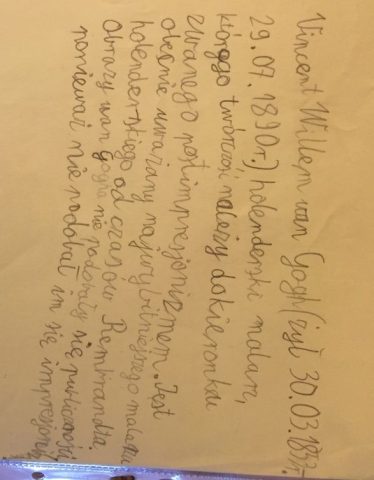 Vincent Willem van Gogh (żył 30.03.1853r.-
29.07.1890r.) holenderski malarz,
którego twórczość należy do kieronku
zwanego postimpresjonizmem. Jest
obecnie uważany najwybitniejszego malarza
holenderskiego od czasów Rembrandta.
Obrazy van gogha nie podobały się publiczności
ponieważ nie podobał im się impresjonizm